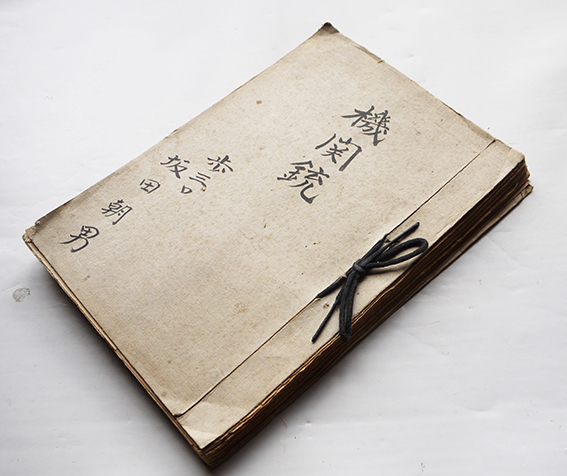 機関銃
歩三ロ
坂田朝男